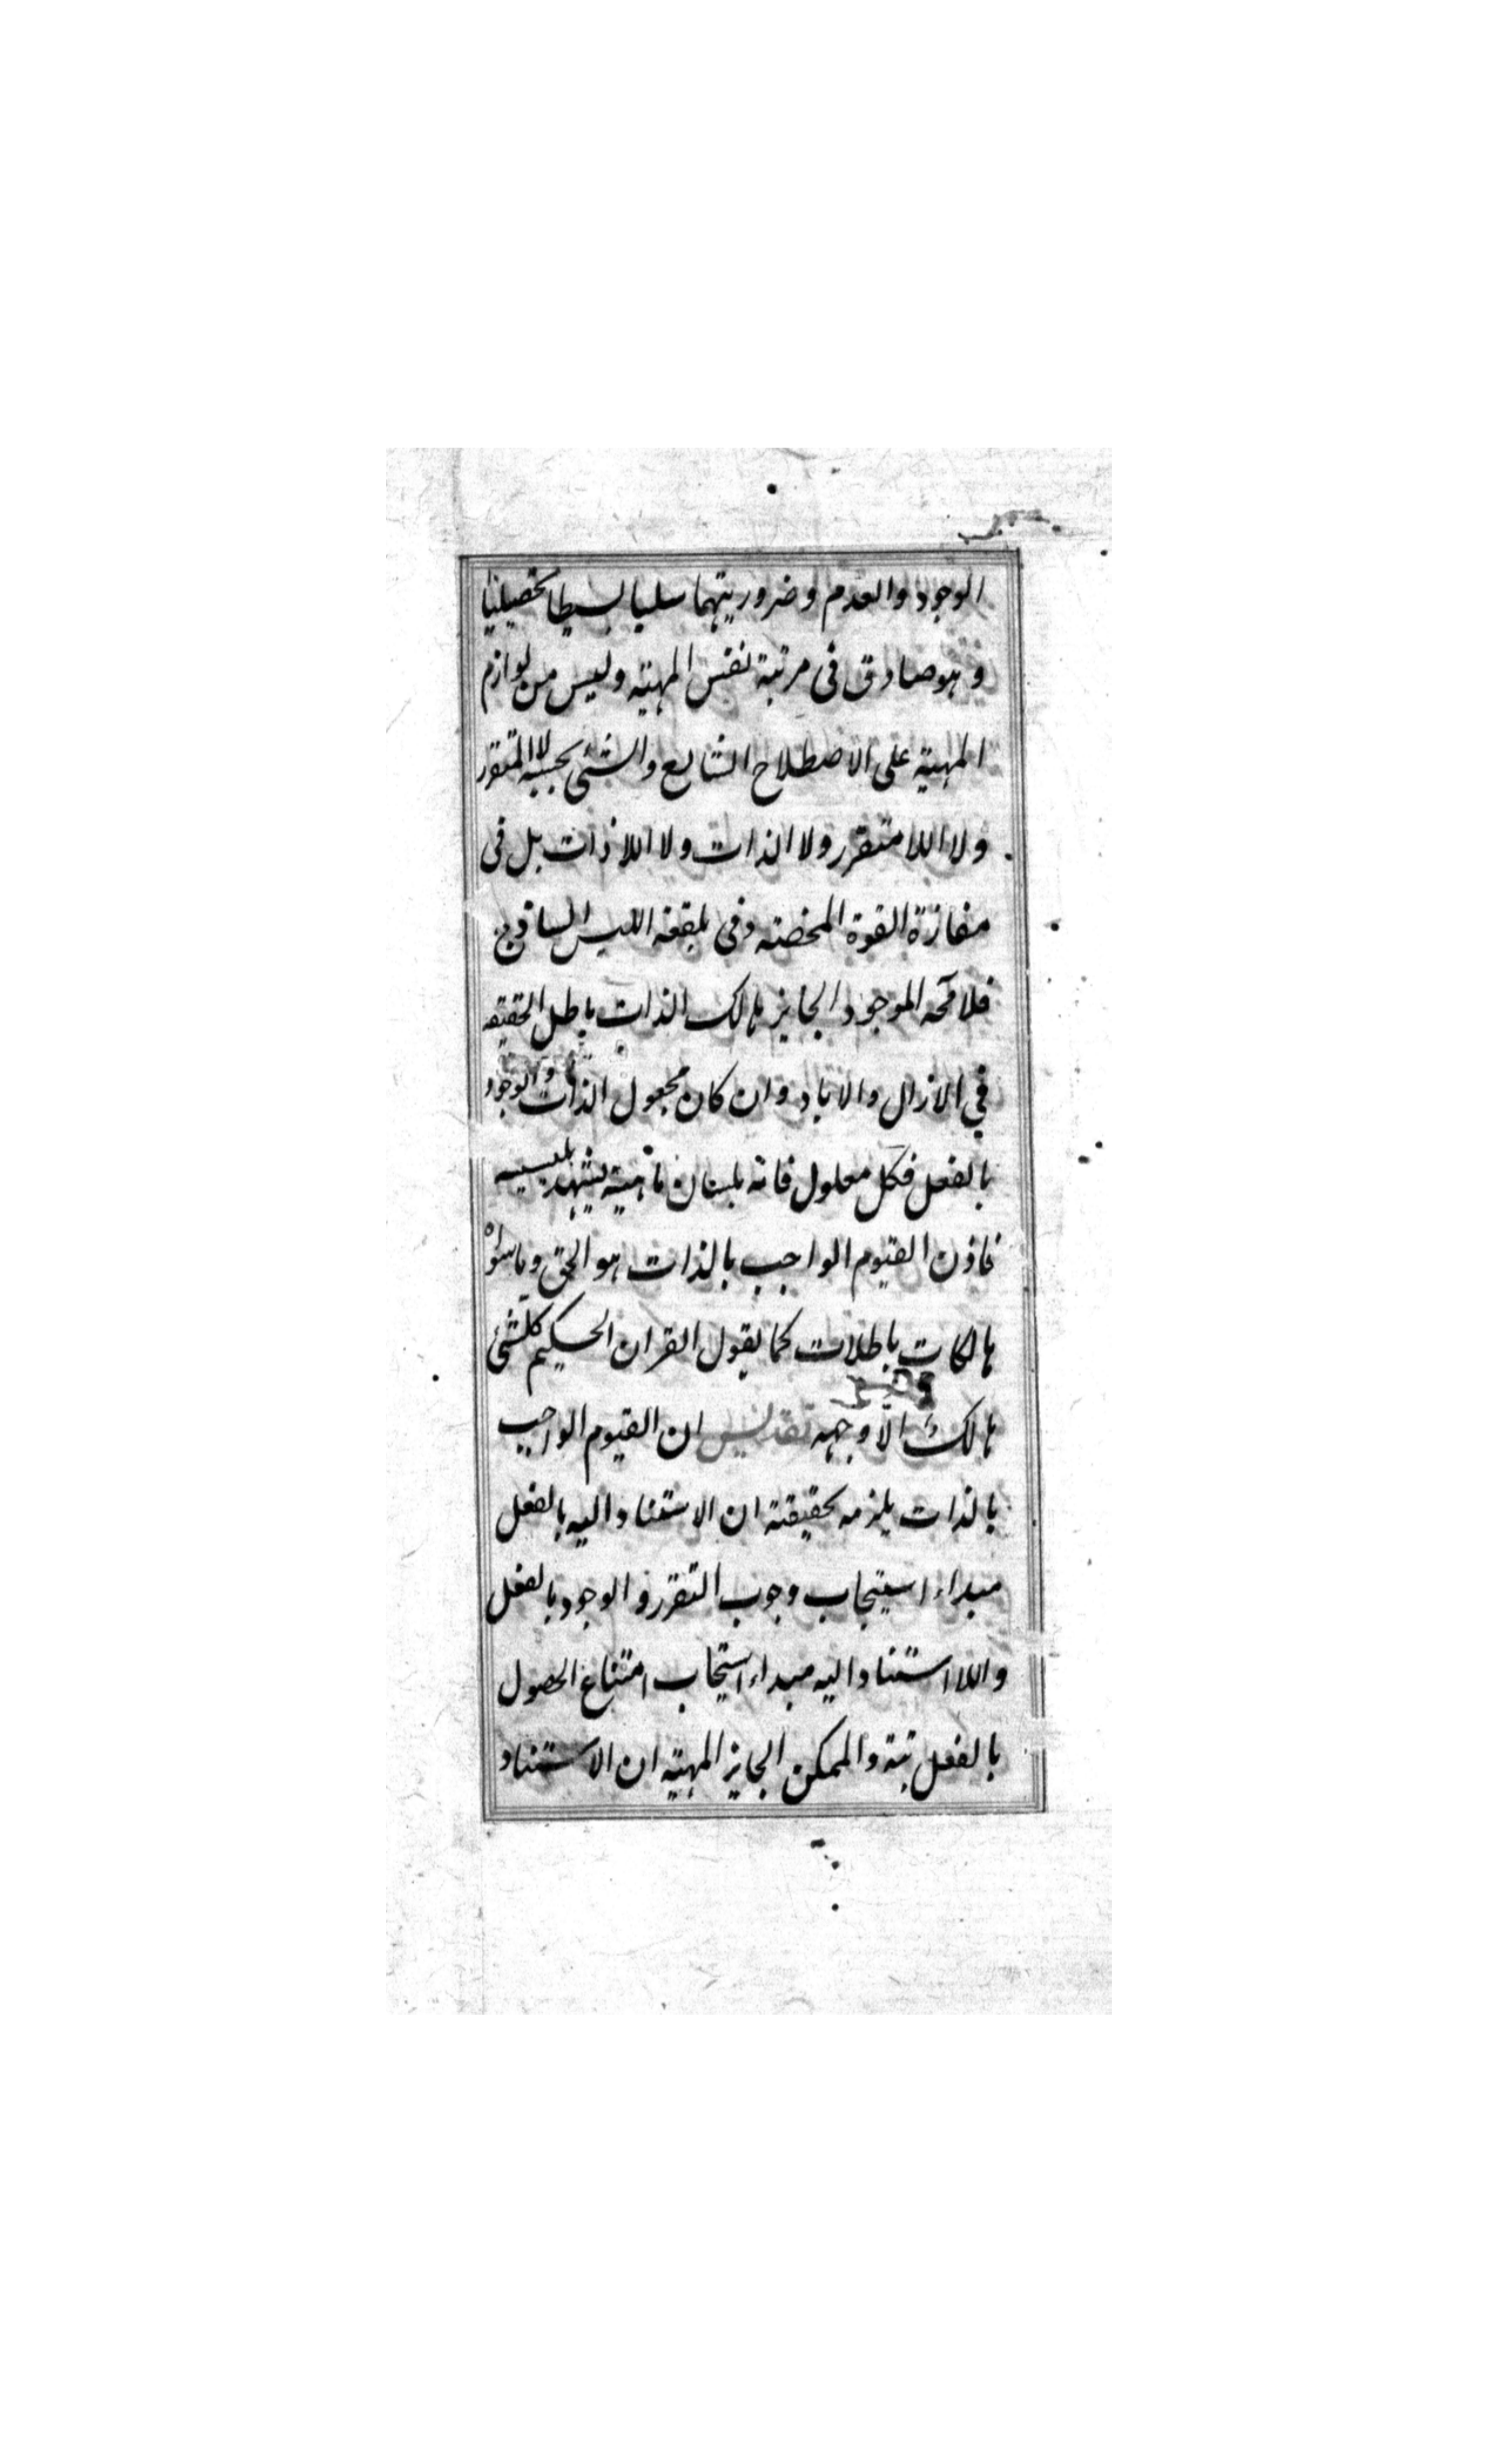 الوجود والعدم وضروريتهما سلبا بسيطا تحصيليا
وهو صادق فى مرتبة نفس المهية وليس من لوازم
المهية على الاصطلاح الشايع والشئ بحسبه لا المتقرر
ولا اللا متقرر ولا الذات ولا اللا ذات بل فى
مفازة القوة المحضة وفى بلقعة الليس الساذج
فلا محه الموجود الجايز هالك الذات باطل الحقيقه
فى الازال والاباد وان كان مجعول الذات والوجود
بالفعل فكل معلول فانه بلسان ماهيته يشهد بليسيه
فاذن القيوم الواجب بالذات هو الحق وما سواه
هالكات باطلات كما يقول القران الحكيم كلشئ
هالك الا وجهه تقديس ان القيوم الواجب
بالذات يلزمه بحقيقته ان الاستناد اليه بالفعل
مبداء استيجاب وجوب التقرر والوجود بالفعل
واللا استناد اليه مبداء استيجاب امتناع الحصول
بالفعل بتة والممكن الجايز المهية ان الاستناد